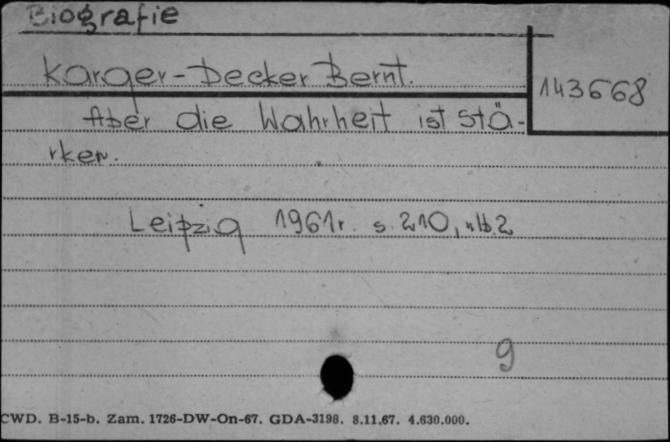 Biografie
Karger-Decker Bernt.
143668
Aber die Wahrheit ist stä-
rker.
Leipzig 1961r. s. 210, nlb. 2
9
CWD. B-15-b. Zam. 1726-DW-On-67. GDA-3198. 8.11.67. 4.630.000.